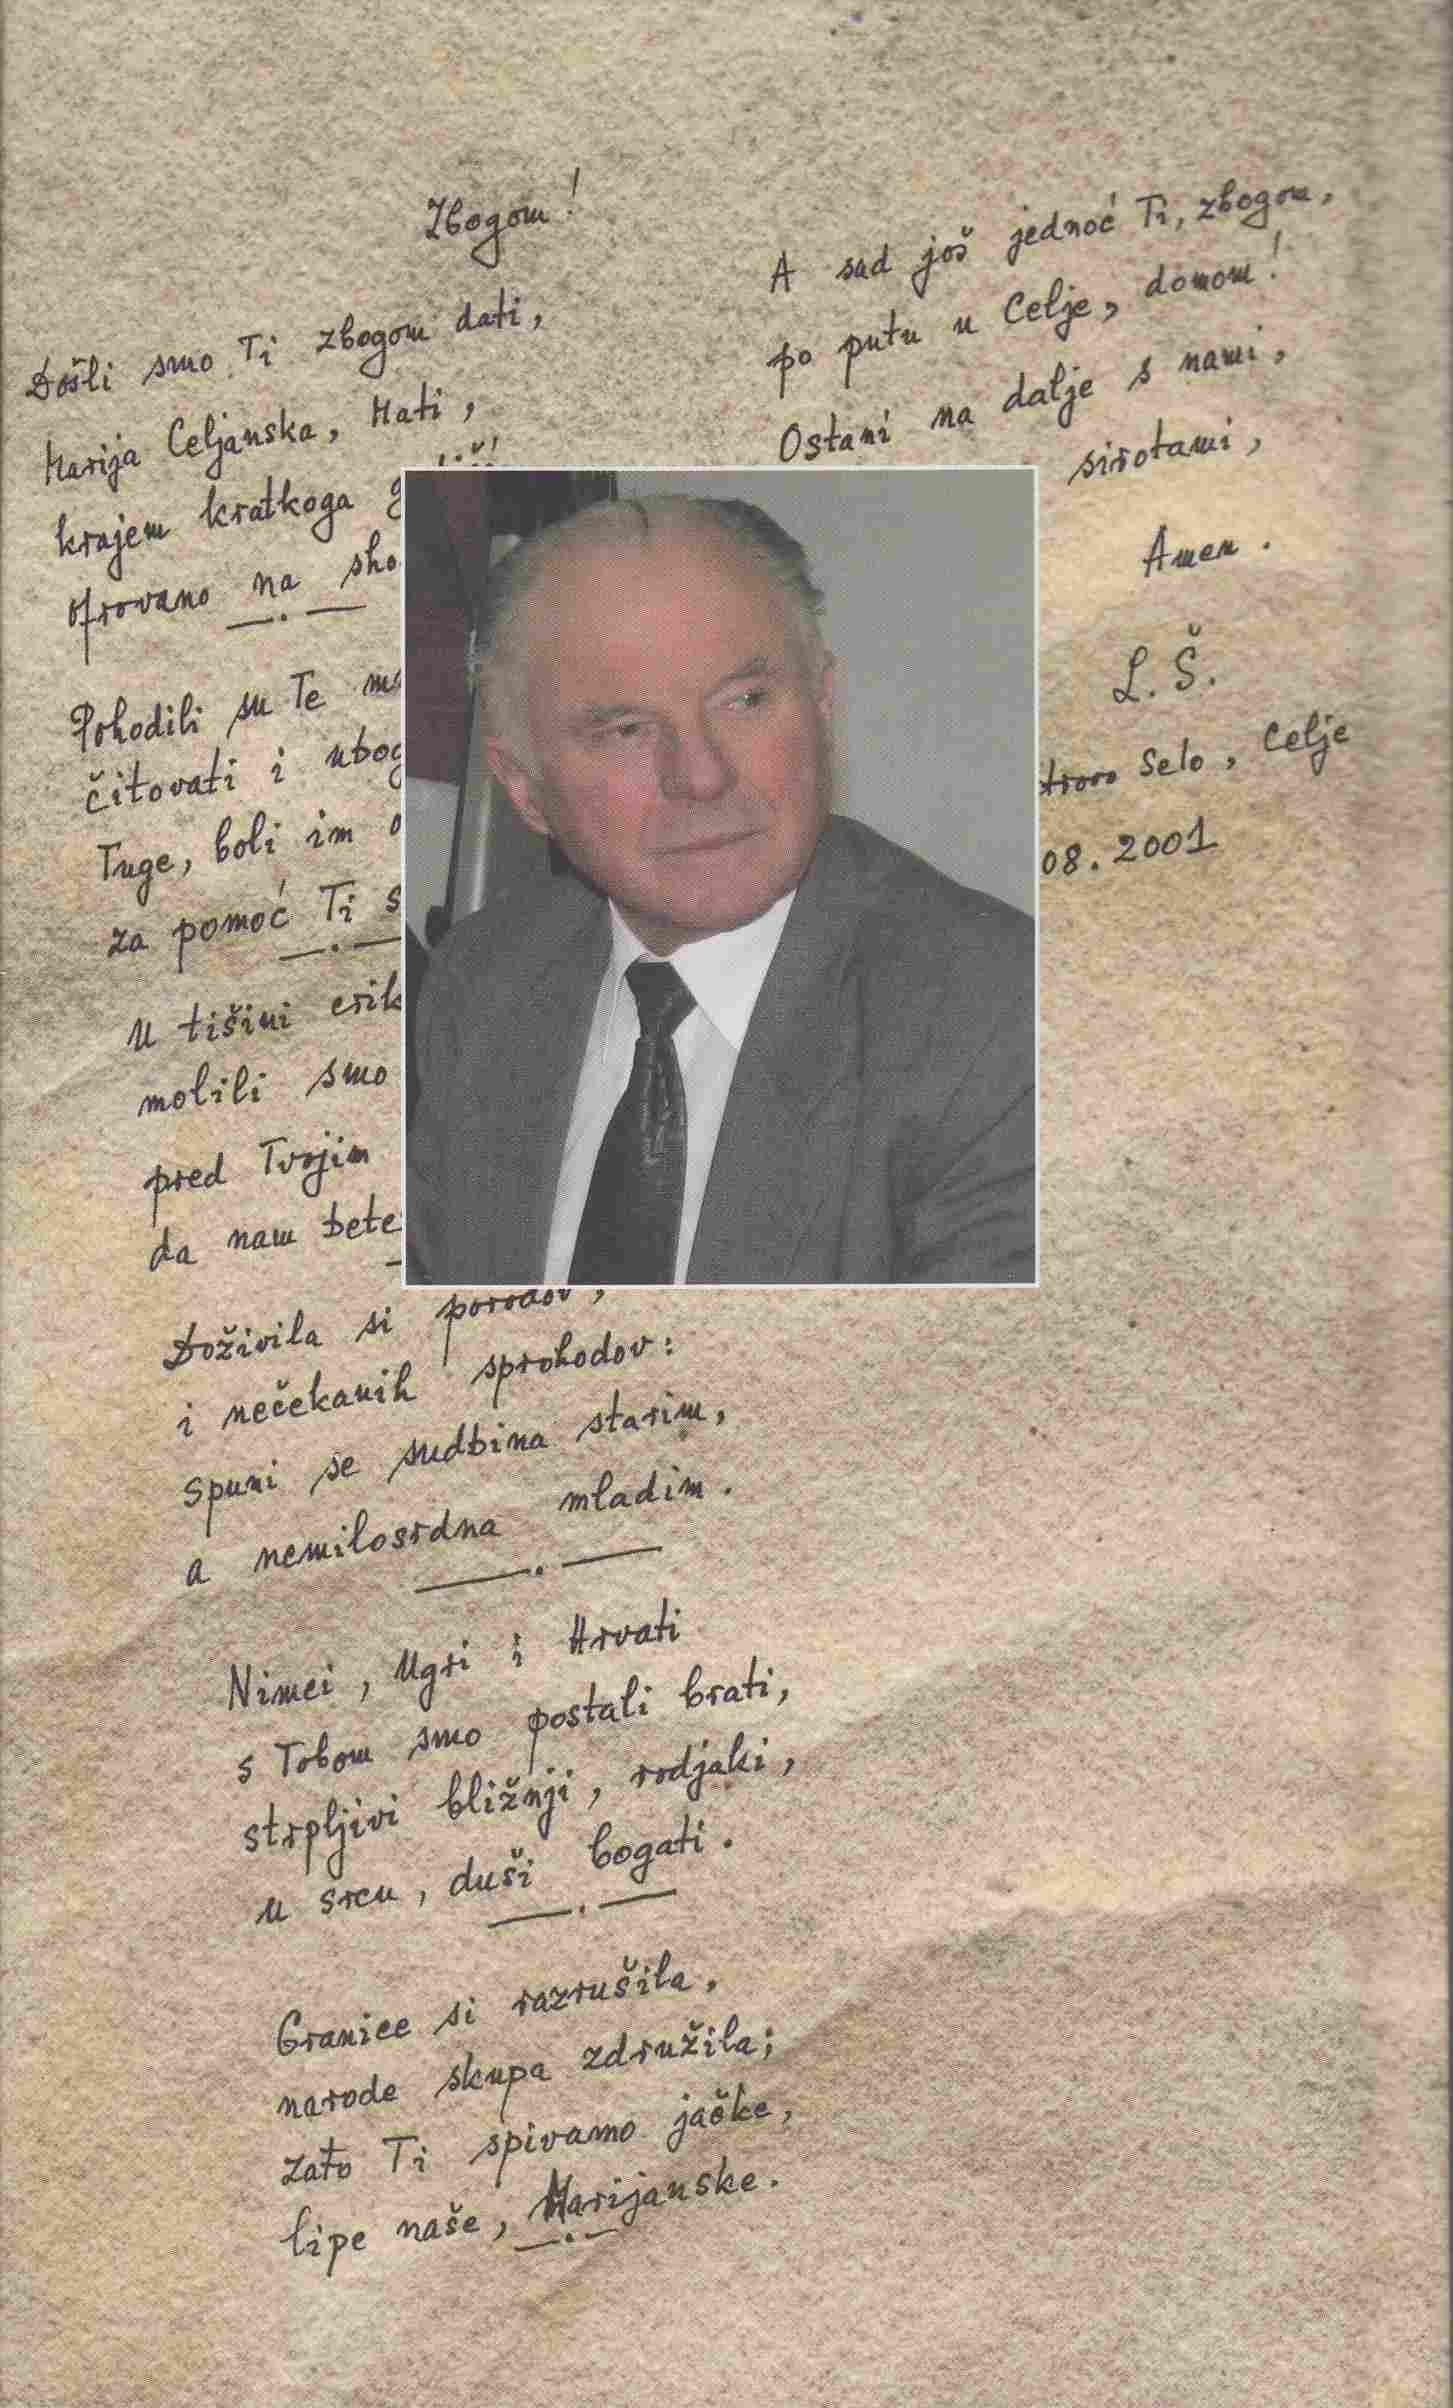 Zbogom!
Došli smo Ti zbogom dati,
Marija Celjanska, Mati,
krajem kratkoga
ofrovano na
Pohodili su Te
čitovati i
Tuge, boli im
za pomoć Ti
U tišini
molili smo
pred Tvojim
da nam
Doživila si porodov,
i nečekanih sprohodov:
Spuni se sudbina starim,
a nemilosrdna mladim.
Nimci, Ugri i Hrvati
s Tobom smo postali brati,
strpljivi bližnji, rodjaki,
u srcu, duši bogati.
Granice si razrušila,
narode skupa združila;
zato Ti spivamo jačke,
lipe naše, Marijanske.
A sad još jednoć Ti, zbogom,
po putu u Celje, domom!
Ostani na dalje s nami,
sirotami,
Amen.
L. Š.
Selo, Celje
08.2001